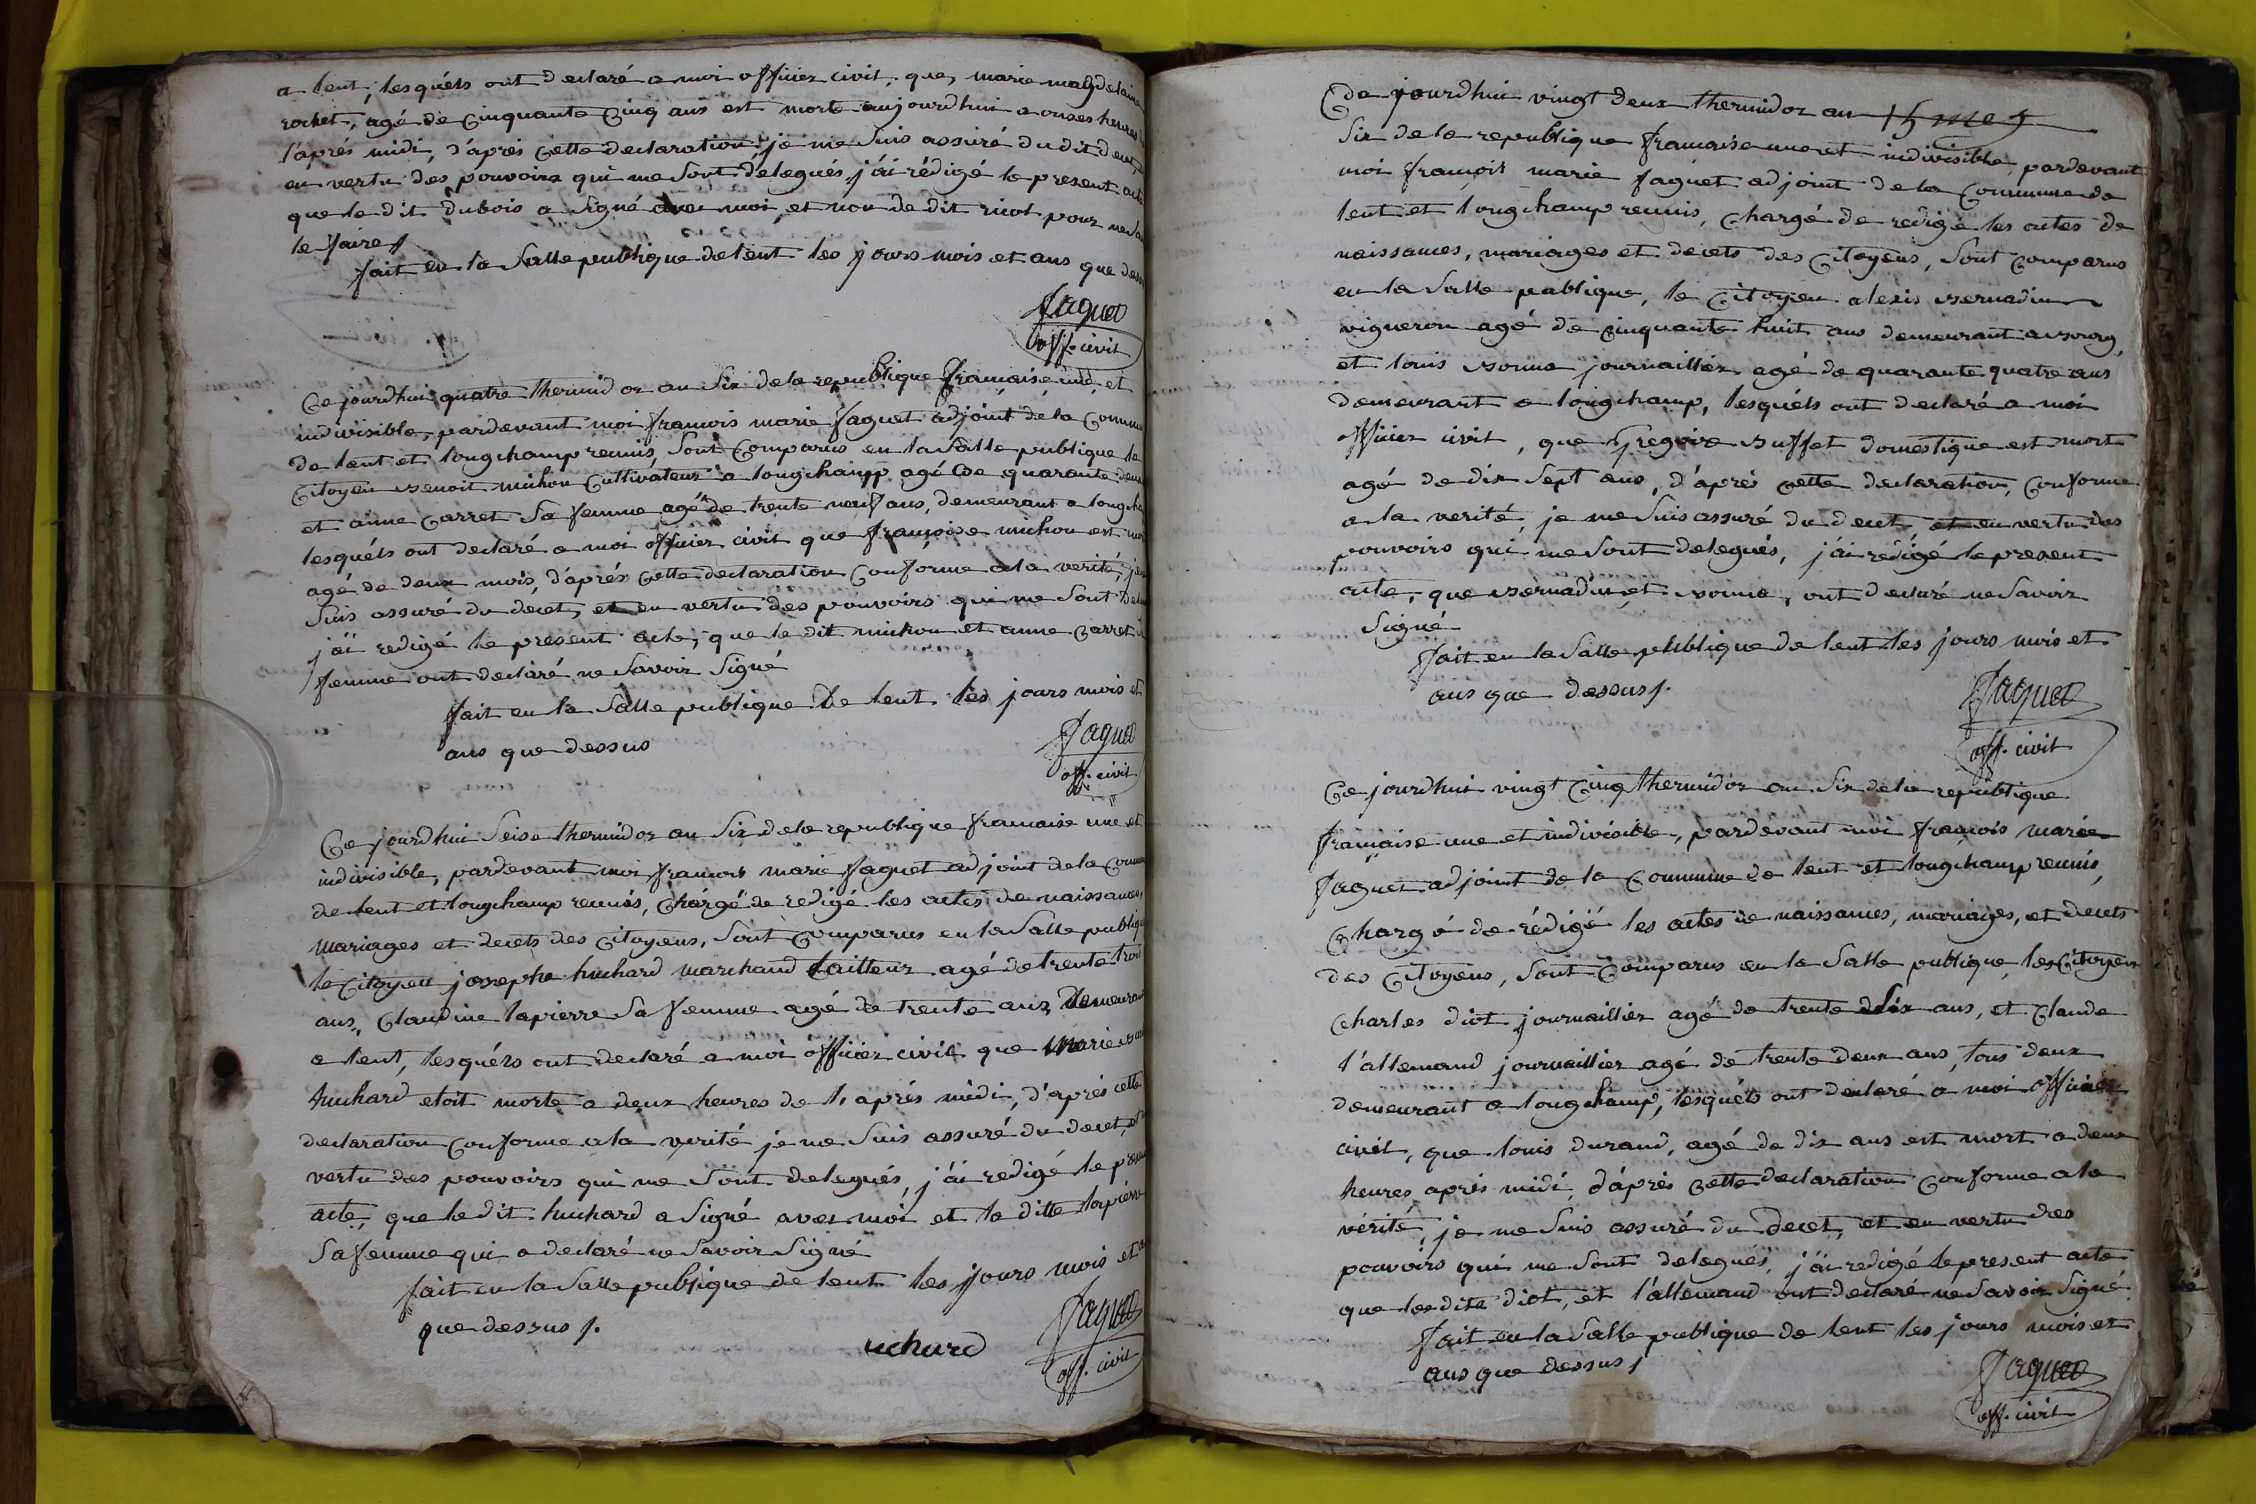 a lent, lesquéls ont declaré a moi officier civil, que, marie magdelaine
rochet, agé de cinquante cinq ans est morte aujourdhui a onses heures
l'aprés midi, d'aprés cette declaration je me suis assuré du dit decet,
en vertu des pouvoirs qui me sont délegués, j'ái rédigé le present acte
que le dit dubois a signé avec moi, et non le dit ricol pour ne sa
le faire
fait en la salle publique de lent les jours mois et ans que dess
faguet
off. civil
Ce jourdhui quatre thermidor an six de la republique française une et
indivisible, pardevant moi francois marie faguet adjoint de la commu
de lent et longchamp reunis, sont comparus en la salle publique le
citoyen benoit michon cultivateur a longchamp agé de quarante deux
et anne carret sa femme agé de trente neuf ans, demeurant a longcha
lesquéls ont declaré a moi officier civil que françoise michon est mor
agé de deux mois, d'aprés cette declaration conforme ala verité, je
suis assuré du decet, et en vertu des pouvoirs qui me sont del
j'ái redigé le present acte, que le dit michon et anne carret
femme ont declaré ne savoir signé
fait en la salle publique de lent les jours mois et
ans que dessus
faguet
off. civil
Ce jourdhui seise thermidor an six dela republique francaise une et
indivisible, pardevant moi francois marie faguet adjoint de la commu
de lent et longchamp reunis, chargé de redigé les actes de naissances,
mariages et decets des citoyens, sont comparus en la salle publique
le citoyen josephe huchard marchand tailleur agé de trente trois
ans, Claudine lapierre sa femme agé de trente ans, demeurant
a lent, lesquéls ont declaré a moi officier civil que marie
huchard etoit morte a deux heures de l'aprés midi, d'aprés cette
declaration conforme ala verité je me suis assuré du decet, et
vertu des pouvoirs qui me sont delegués, j'ái redigé le prese
acte, que le dit huchard a signé avec moi et la ditte lapierre
sa femme qui a declaré ne savoir signé
fait en la salle publique de lent les jours mois et
que dessus /.
uchard
faguet
off. civil
Ce jourdhui vingt deux thermidor an
six de la republique francaise une et indivisible, pardevant
moi françois marie faguet adjoint de la commune de
lent et longchamp reunis, chargé de redigé les actes de
naissances, mariages et decets des citoyens, sont comparus
en la salle publique, le citoyen alexis bernadin
vigneron agé de cinquante huit ans demeurant a bourg,
et louis bonne journaillier agé de quarante quatre ans
demeurant a longchamp, lesquéls ont declaré a moi
officier civil, que gregoire buffet domestique est mort
agé de dix sept ans, d'aprés cette declaration, conforme
a la verité, je me suis assuré du decet et en vertu des
pouvoirs qui me sont delegués, j'ái redigé le present
acte, que bernadin et bonne, ont declaré ne savoir
signé
fait en la salle publique de lent les jours mois et
ans que dessus /.
faguet
off. civil
Ce jourdhui vingt cinq thermidor an six dela republique
française une et indivisible, pardevant moi françois marie
faguet adjoint de la commune de lent et longchamp reunis,
chargé de rédigé les actes de naissances, mariages, et decets
des citoyens, sont comparus en la salle publique, les citoyens
charles diot journaillier agé de trente dix ans, et claude
l'allemand journaillier agé de trente deux ans, tous deux
demeurant a longchamp, lesquéls ont declaré a moi officier
civil, que louis durand, agé de dix ans est mort a deux
heures aprés midi, d'aprés cette declaration conforme ala
vérité, je me suis assuré du decet, et en vertu des
pouvoirs qui me sont delegués, j'ái redigé le present acte
que les dits diot, et l'allemand ont declaré ne savoir signé
fait en la salle publique de lent les jours mois et
ans que dessus /
faguet
off. civil